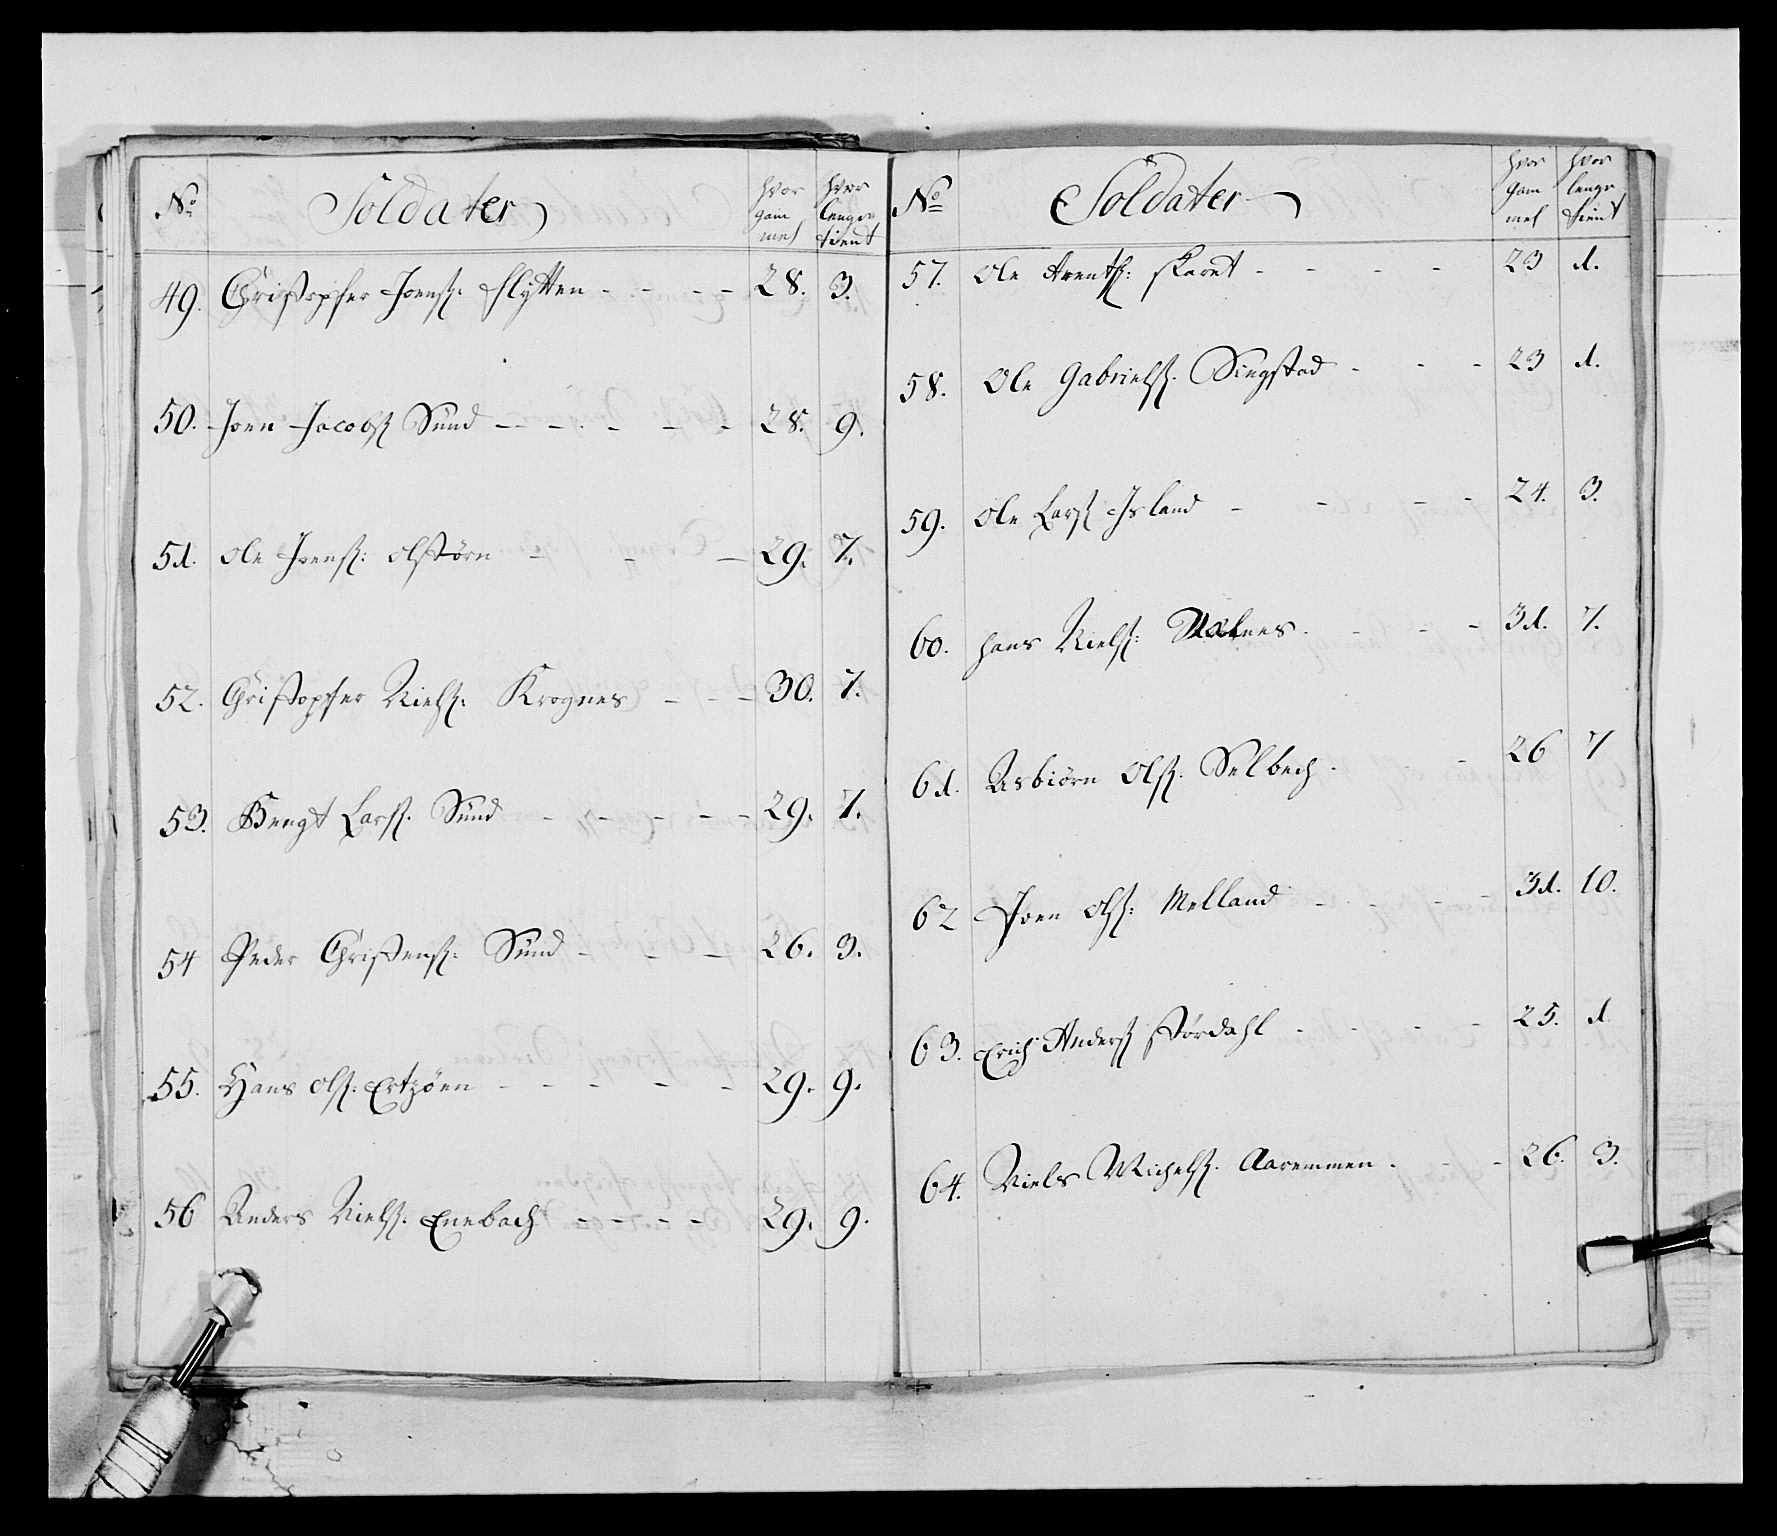 No Soldater hvor gammel hvor lenge tient
49. Christopher Joens: Flytten - - - - 28. 3.
50. Joen Jacobs Sund - - - - - 28. 9.
51. Ole Joens: Olstørn - - - 29. 7.
52. Christopher Niels: Krognes - - - 30. 7.
53. Bengt Lars: Sund - - - - - 29. 7.
54 Peder Christens: Sund - - - 26. 3.
55. Hans Ols: Ertzøen - - - - - 29. 9.
56 Anders Niels: Enebach - - - - 29. 9.
No Soldater hvor gammel hvor lenge tient
57. Ole Arents: Skaret - - - - 23 1.
58. Ole Gabriels: Singstad - - - 23 1.
59. Ole Lars Island - - - - 24. 3.
60. Hans Niels: - - - 31. 7.
61. Asbiörn Ols: Selbech - - 26 7
62 Joen Ols: Melland - - - - 31. 10.
63. Erich Anders Stördahl - - - - 25. 1.
64. Niels Michels: Aaremmen - - - 26. 3.